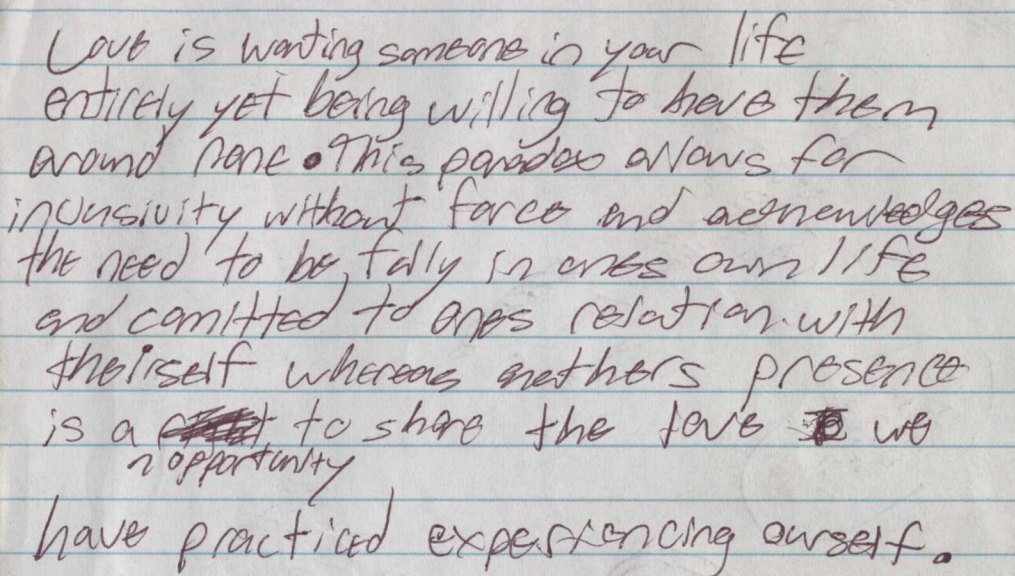 Love is wanting someone in your life
entirely yet being willing to have them
around none. This paradox allows for
inclusivity without force and acknowledges
the need to be fully in ones own life
and comitted to ones relation with
theirself whereas anothers presence
is a to share the love we
n opportunity
have practiced experiencing ourself.